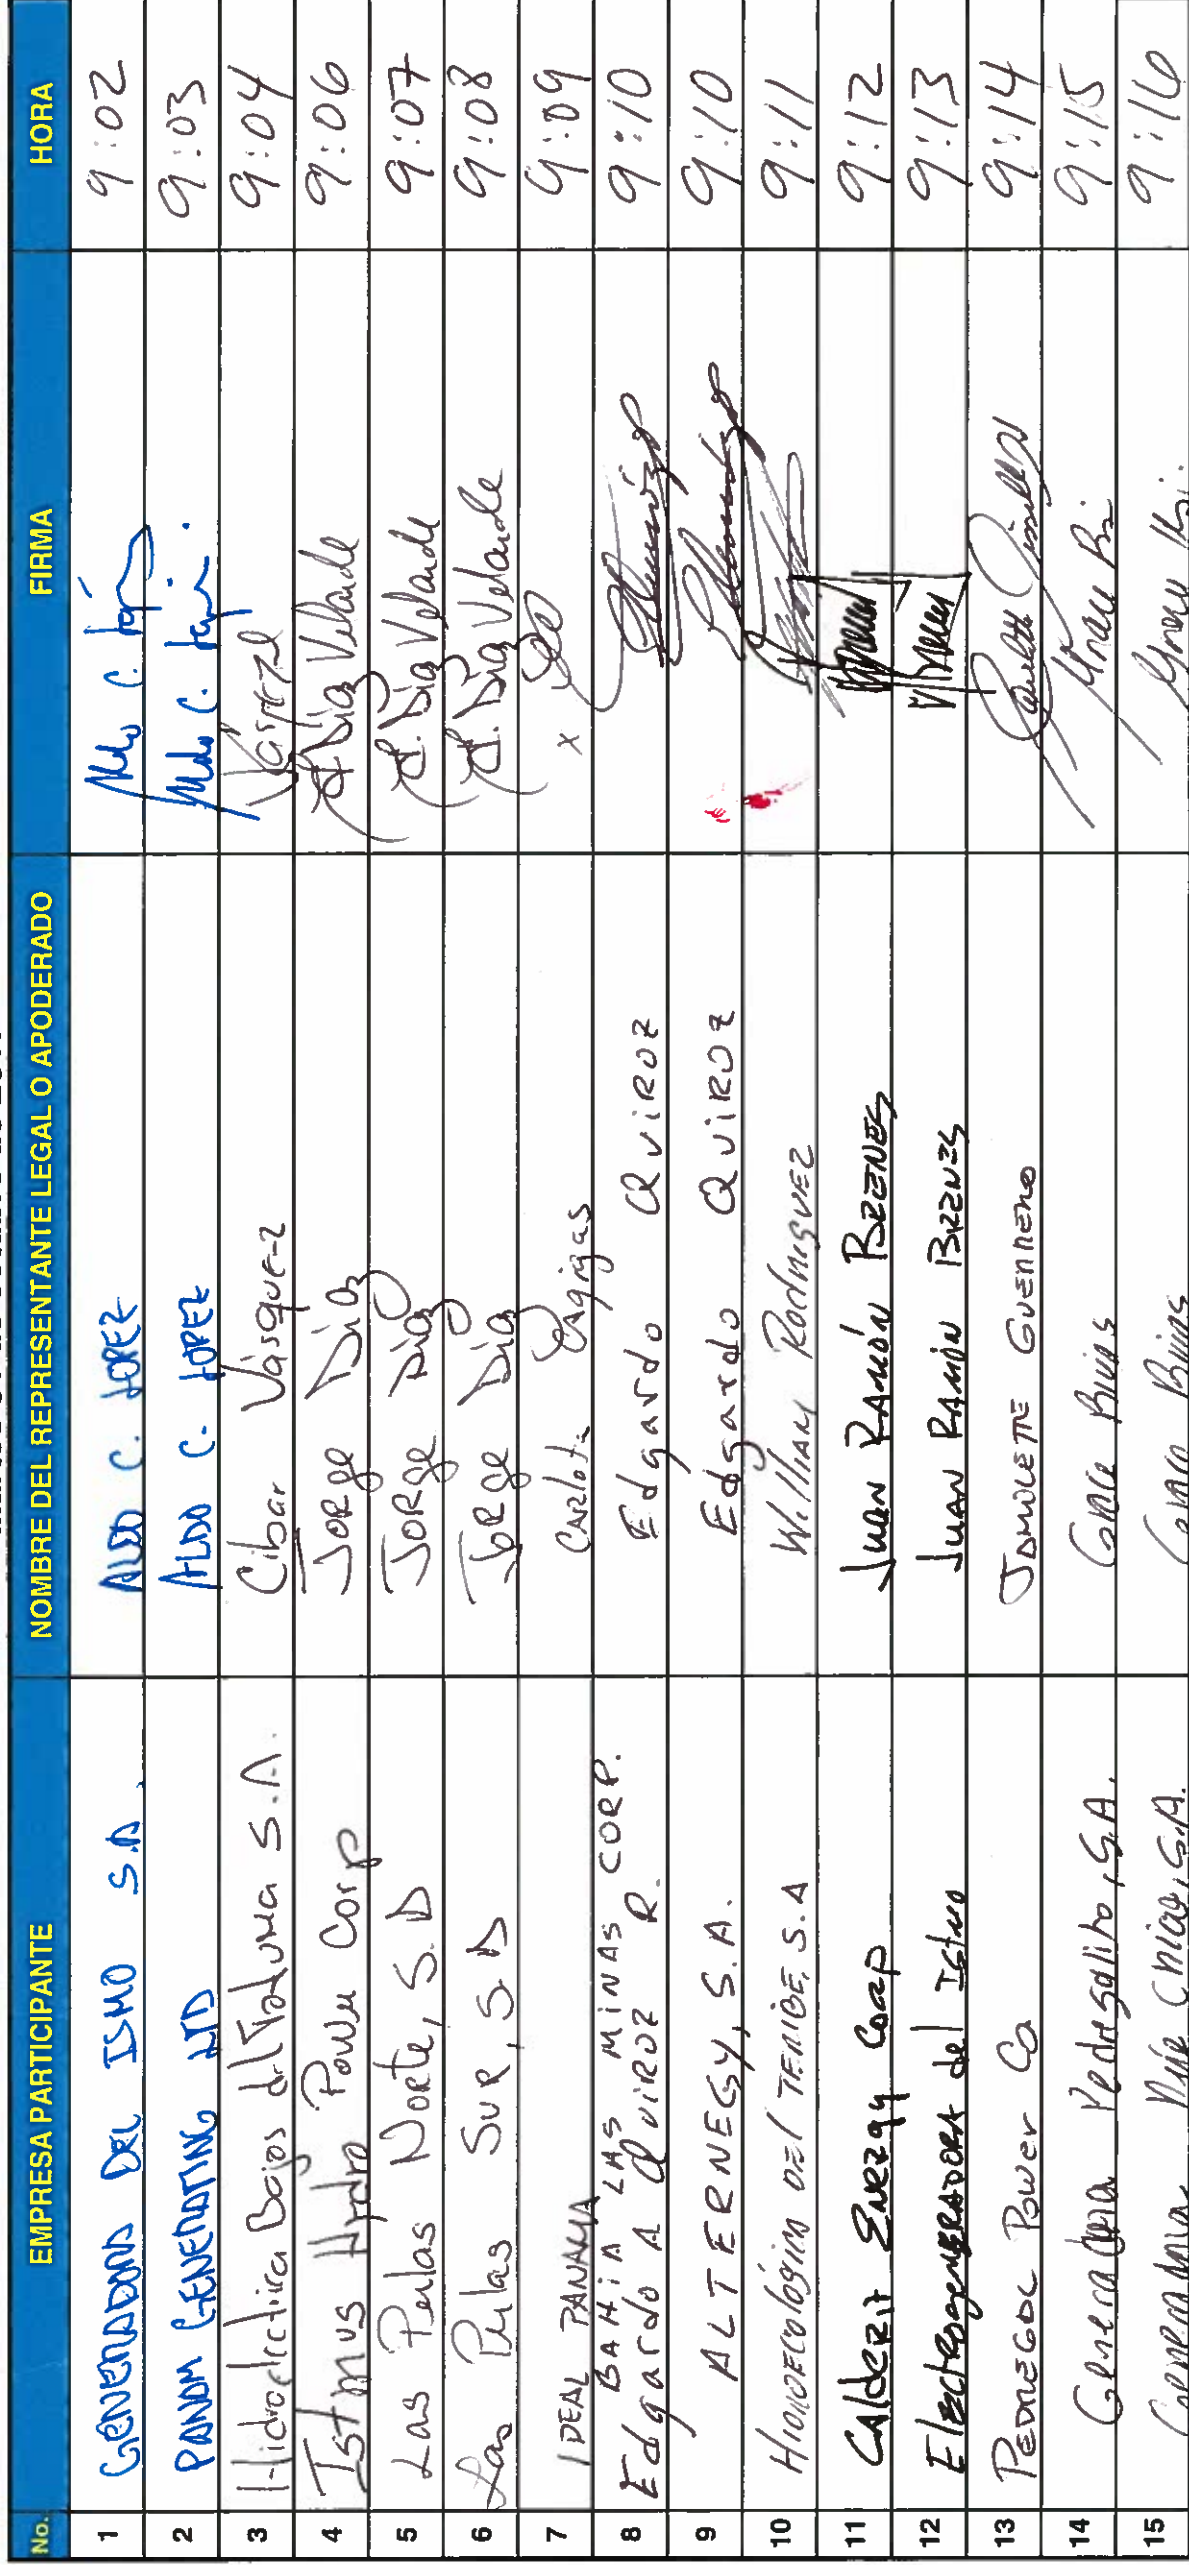 No. EMPRESA PARTICIPANTE NOMBRE DEL REPRESENTANTE LEGAL O APODERADO FIRMA HORA
1 GENERADORA DEL ISMO S.A. ALDO C. LOPEZ 9:02
2 PANAM GENERATING LTD ALDO C. LOPEZ 9:03
3 Hidroelectrica Bajos del Totuma S.A. Cibar Vásquez Vásquez 9:04
4 Istmus Hydro Power Corp Jorge Díaz J. Díaz Velarde 9:06
5 Las Perlas Norte, S.A Jorge Díaz J. Díaz Velarde 9:07
6 Las Perlas Sur, S.A Jorge Díaz J. Díaz Velarde 9:08
7 IDEAL PANAMA Carlota Cagigas x 9:09
8 BAHIA LAS MINAS CORP.
Edgardo A Quiroz R. Edgardo QuiROZ 9:10
9 ALTERNEGY, S.A. Edgardo QuiROZ 9:10
10 HIDROECOLógica DEL TERIBE, S.A William Rodriguez 9:11
11 CAldERA ENERgy Corp JUAN RAMÓN BRENES 9:12
12 ElectrogENERADORA del Istmo JUAN RAMÓN BRENES 9:13
13 PEDREGAL Power Co JANUETTE GUERRERO 9:14
14 Generadora Pedregalito, S.A. 9:15
15 Generadora Río Chico, S.A. 9:16